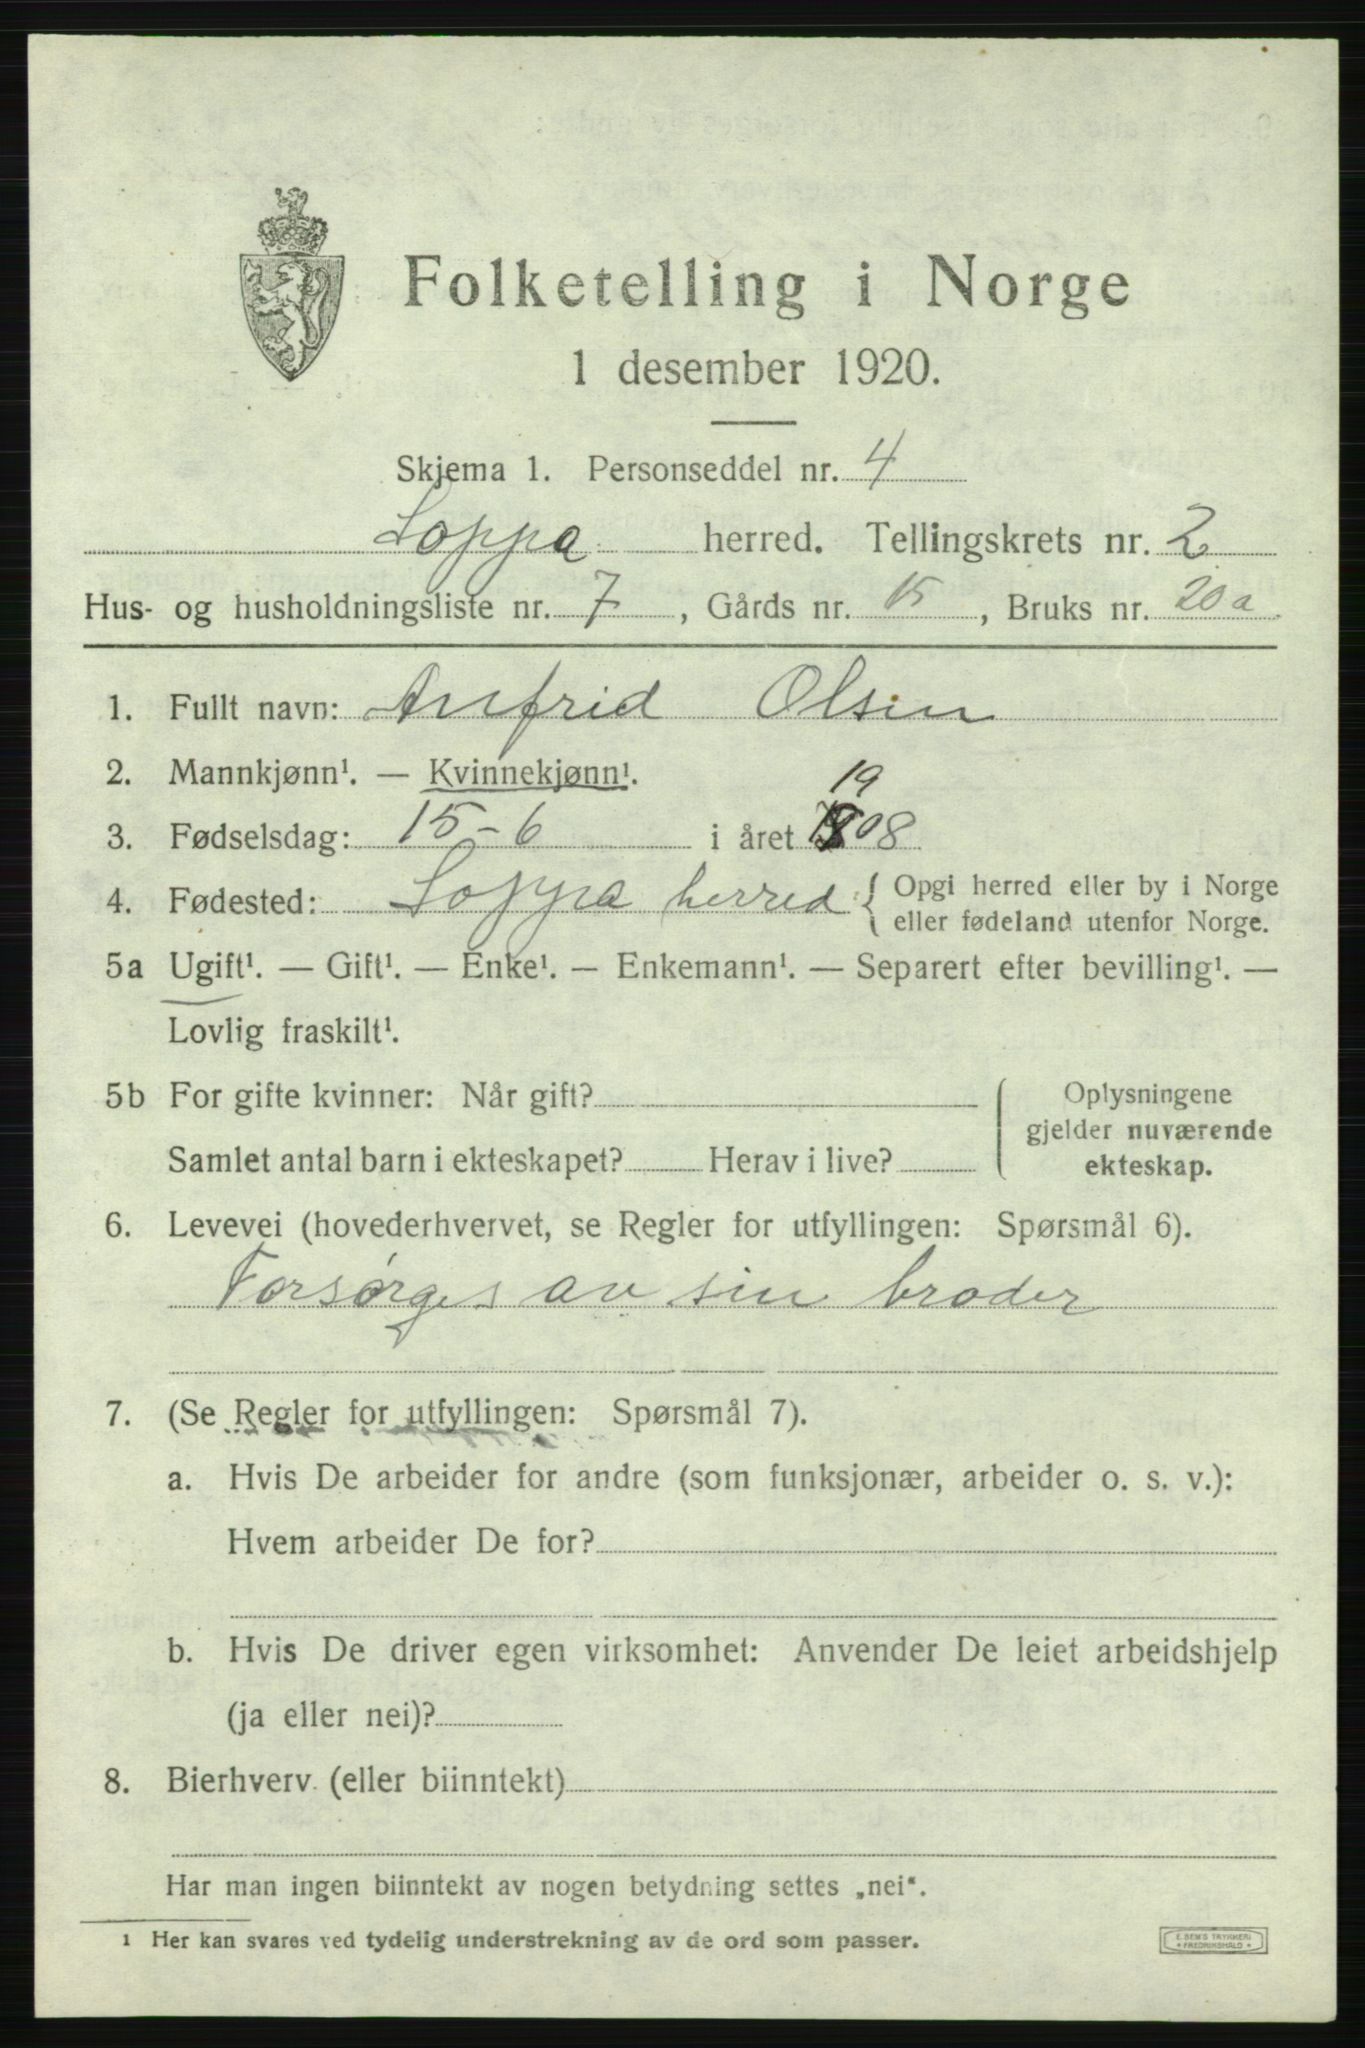 Folketelling i Norge
1 desember 1920.
Skjema 1. Personseddel nr. 4
Loppa herred. Tellingskrets nr. 2
Hus- og husholdningsliste nr. 7, Gårds nr. 15, Bruks nr. 20a
1. Fullt navn: Anfrid Olsen
2. Mannkjønn¹. — Kvinnekjønn¹.
19
3. Fødselsdag: 15-6 i året 1808
4. Fødested: Loppa herred { Opgi herred eller by i Norge
eller fødeland utenfor Norge.
5a Ugift¹. — Gift¹. — Enke¹. — Enkemann¹. — Separert efter bevilling¹. —
Lovlig fraskilt¹.
5b For gifte kvinner: Når gift?
Samlet antal barn i ekteskapet? Herav i live?
Oplysningene
gjelder nuværende
ekteskap.
6. Levevei (hovederhvervet, se Regler for utfyllingen: Spørsmål 6).
Forsørges av sin broder
7. (Se Regler for utfyllingen: Spørsmål 7).
a. Hvis De arbeider for andre (som funksjonær, arbeider o. s. v.):
Hvem arbeider De for?
b. Hvis De driver egen virksomhet: Anvender De leiet arbeidshjelp
(ja eller nei)?
8. Bierhverv (eller biinntekt)
Har man ingen biinntekt av nogen betydning settes „nei“.
1 Her kan svares ved tydelig understrekning av de ord som passer.
E. SEM'S TRYKKERI
FREDRIKSHALD